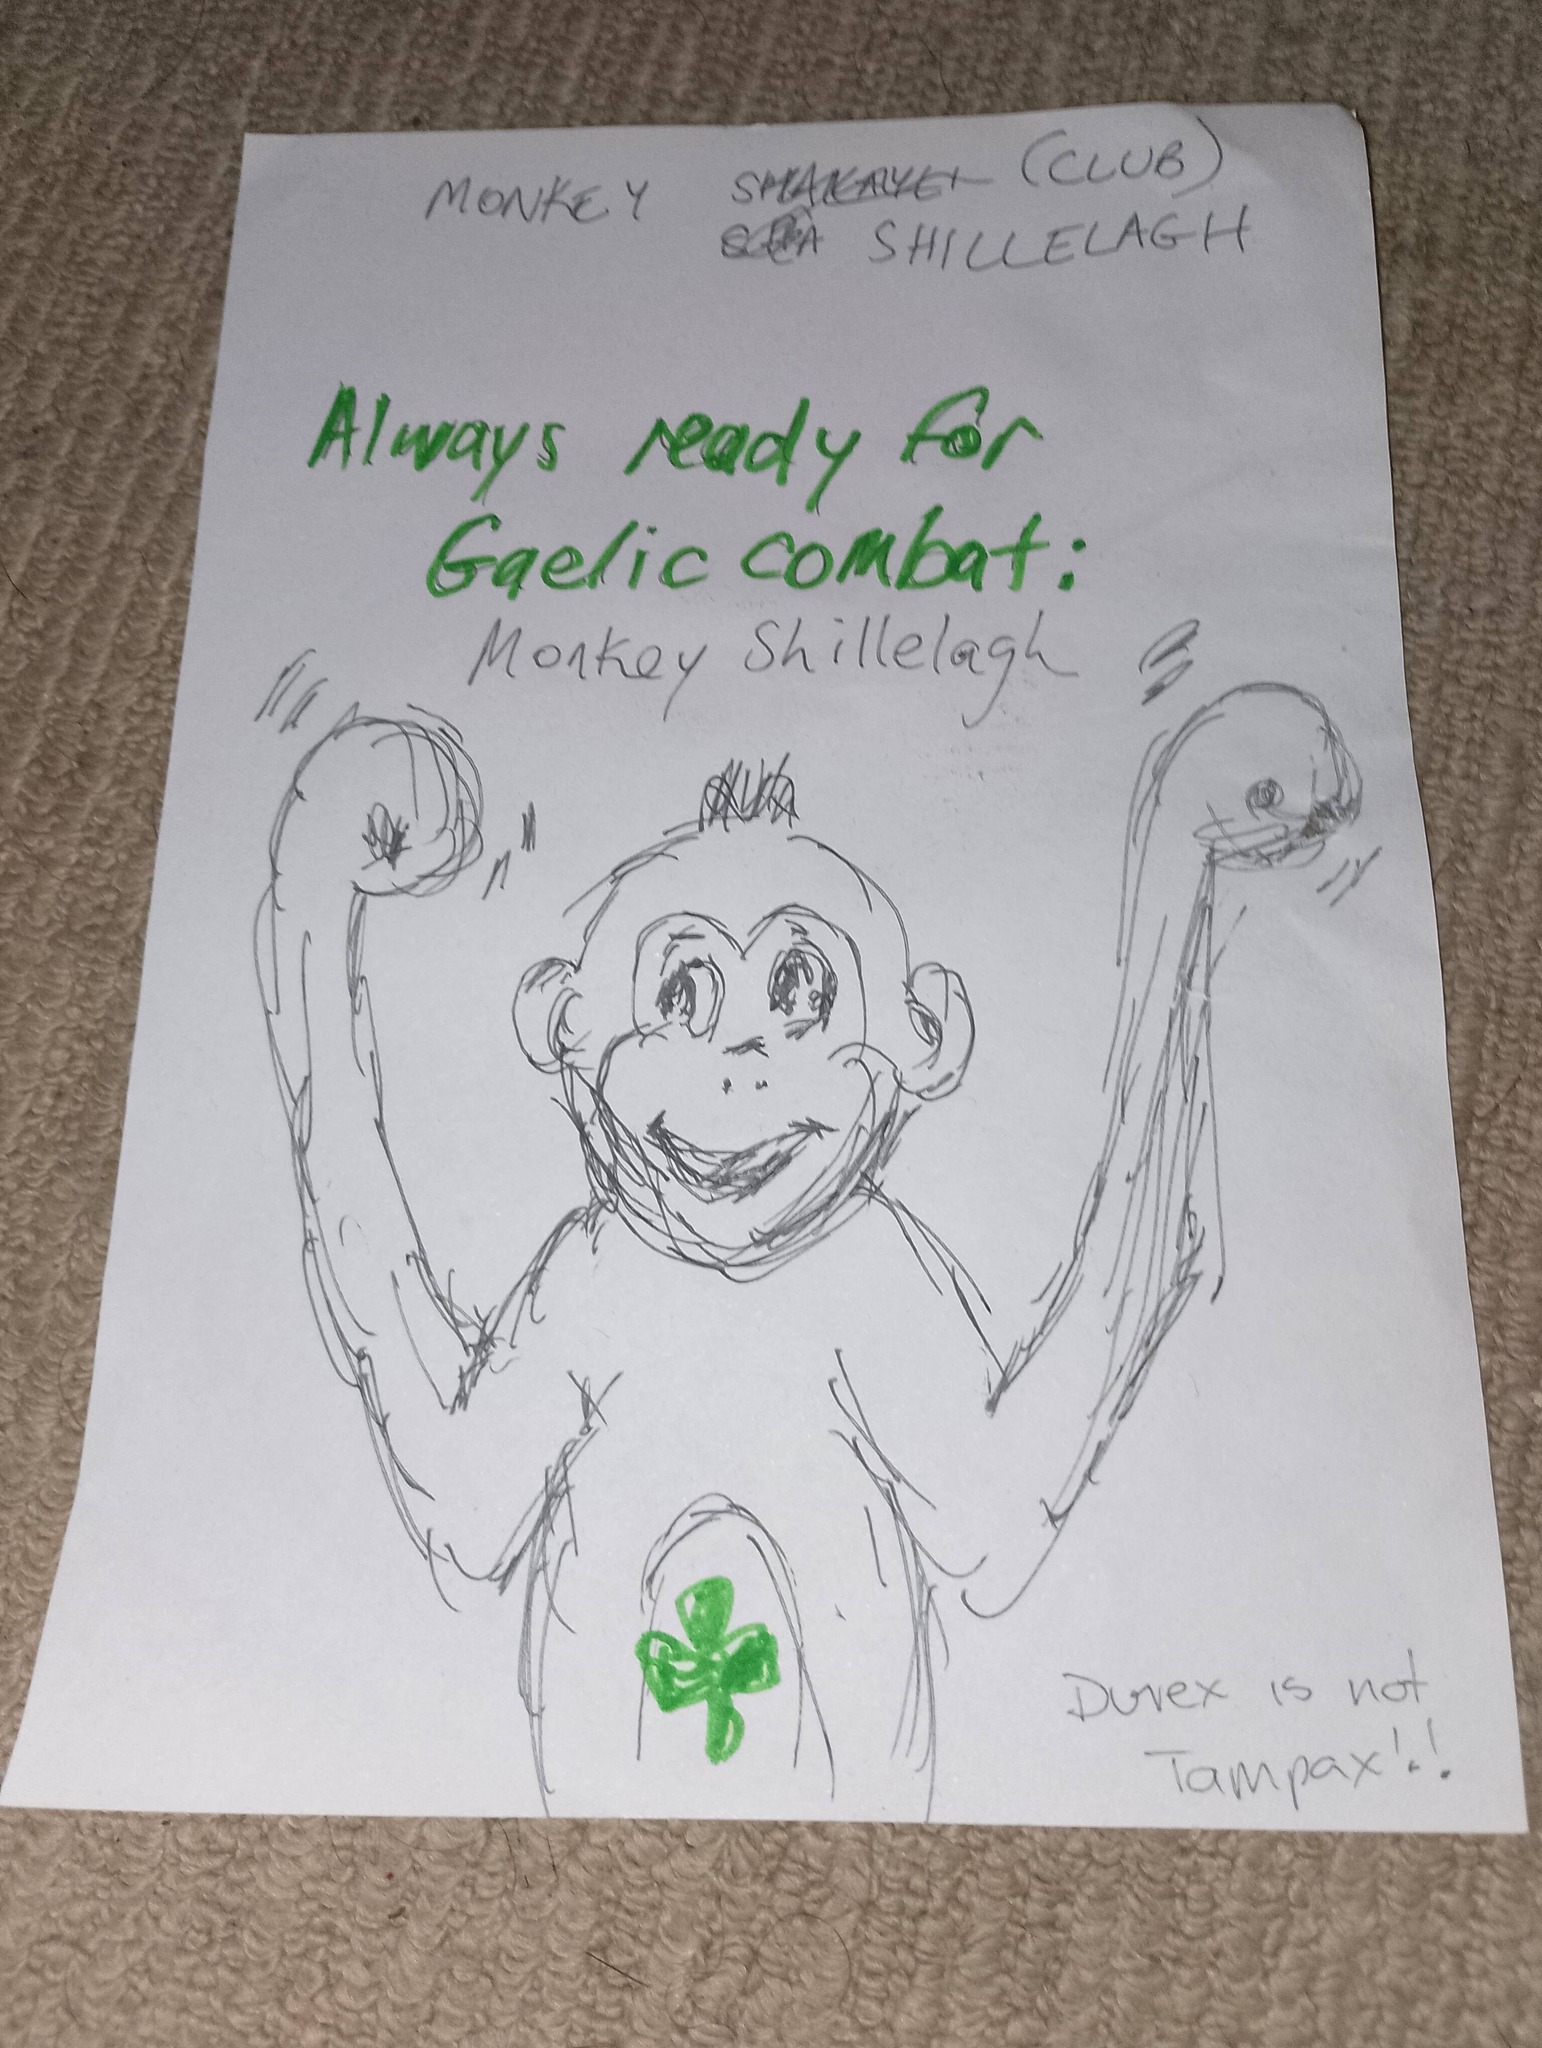 MONKEY (CLUB)
SHILLELAGH
Always ready for
Gaelic combat:
Monkey Shillelagh
Durex is not
Tampax!!